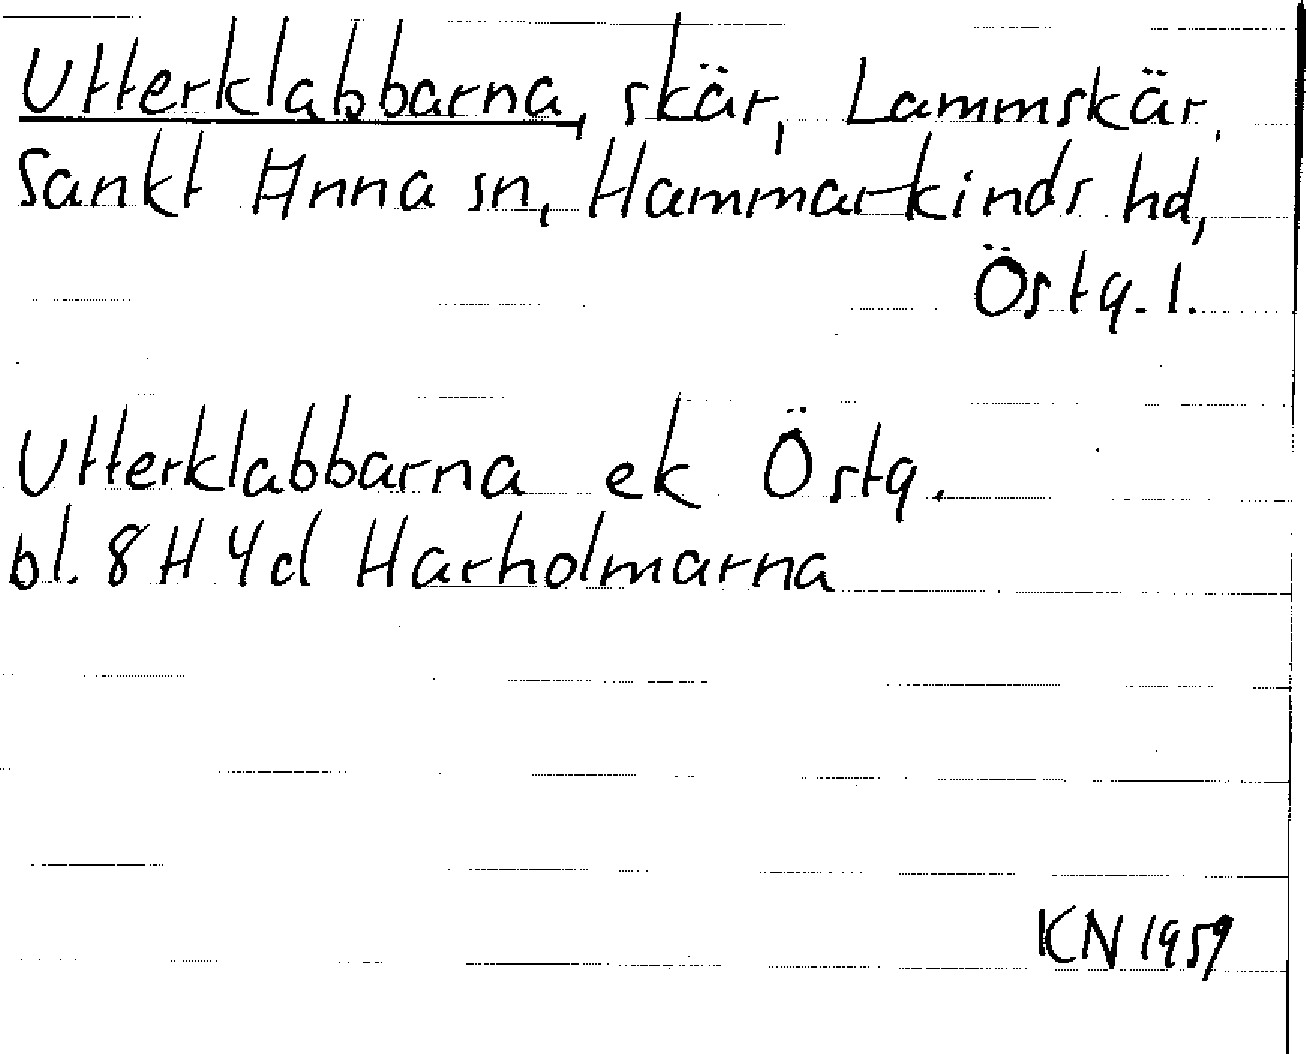 Utterklabbarna, skär, Lammskär,
Sankt Anna sn, Hammarkinds hd,
Östg. l.
Utterklabbarna ek Östg.
bl. 8H 4d Harholmarna
KN 1959